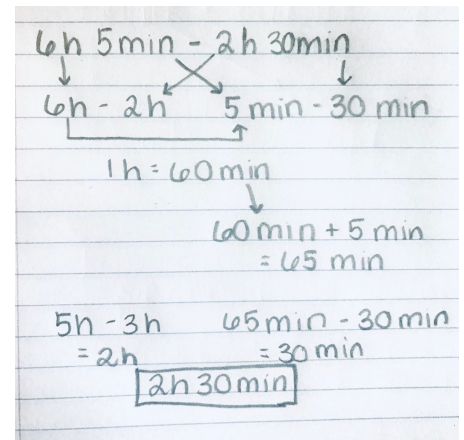 6h 5min - 2h 30min
6h - 2h 5 min - 30 min
1h = 60 min
60 min + 5 min
= 65 min
5h - 3h 65min - 30 min
= 2h = 30 min
2h 30min